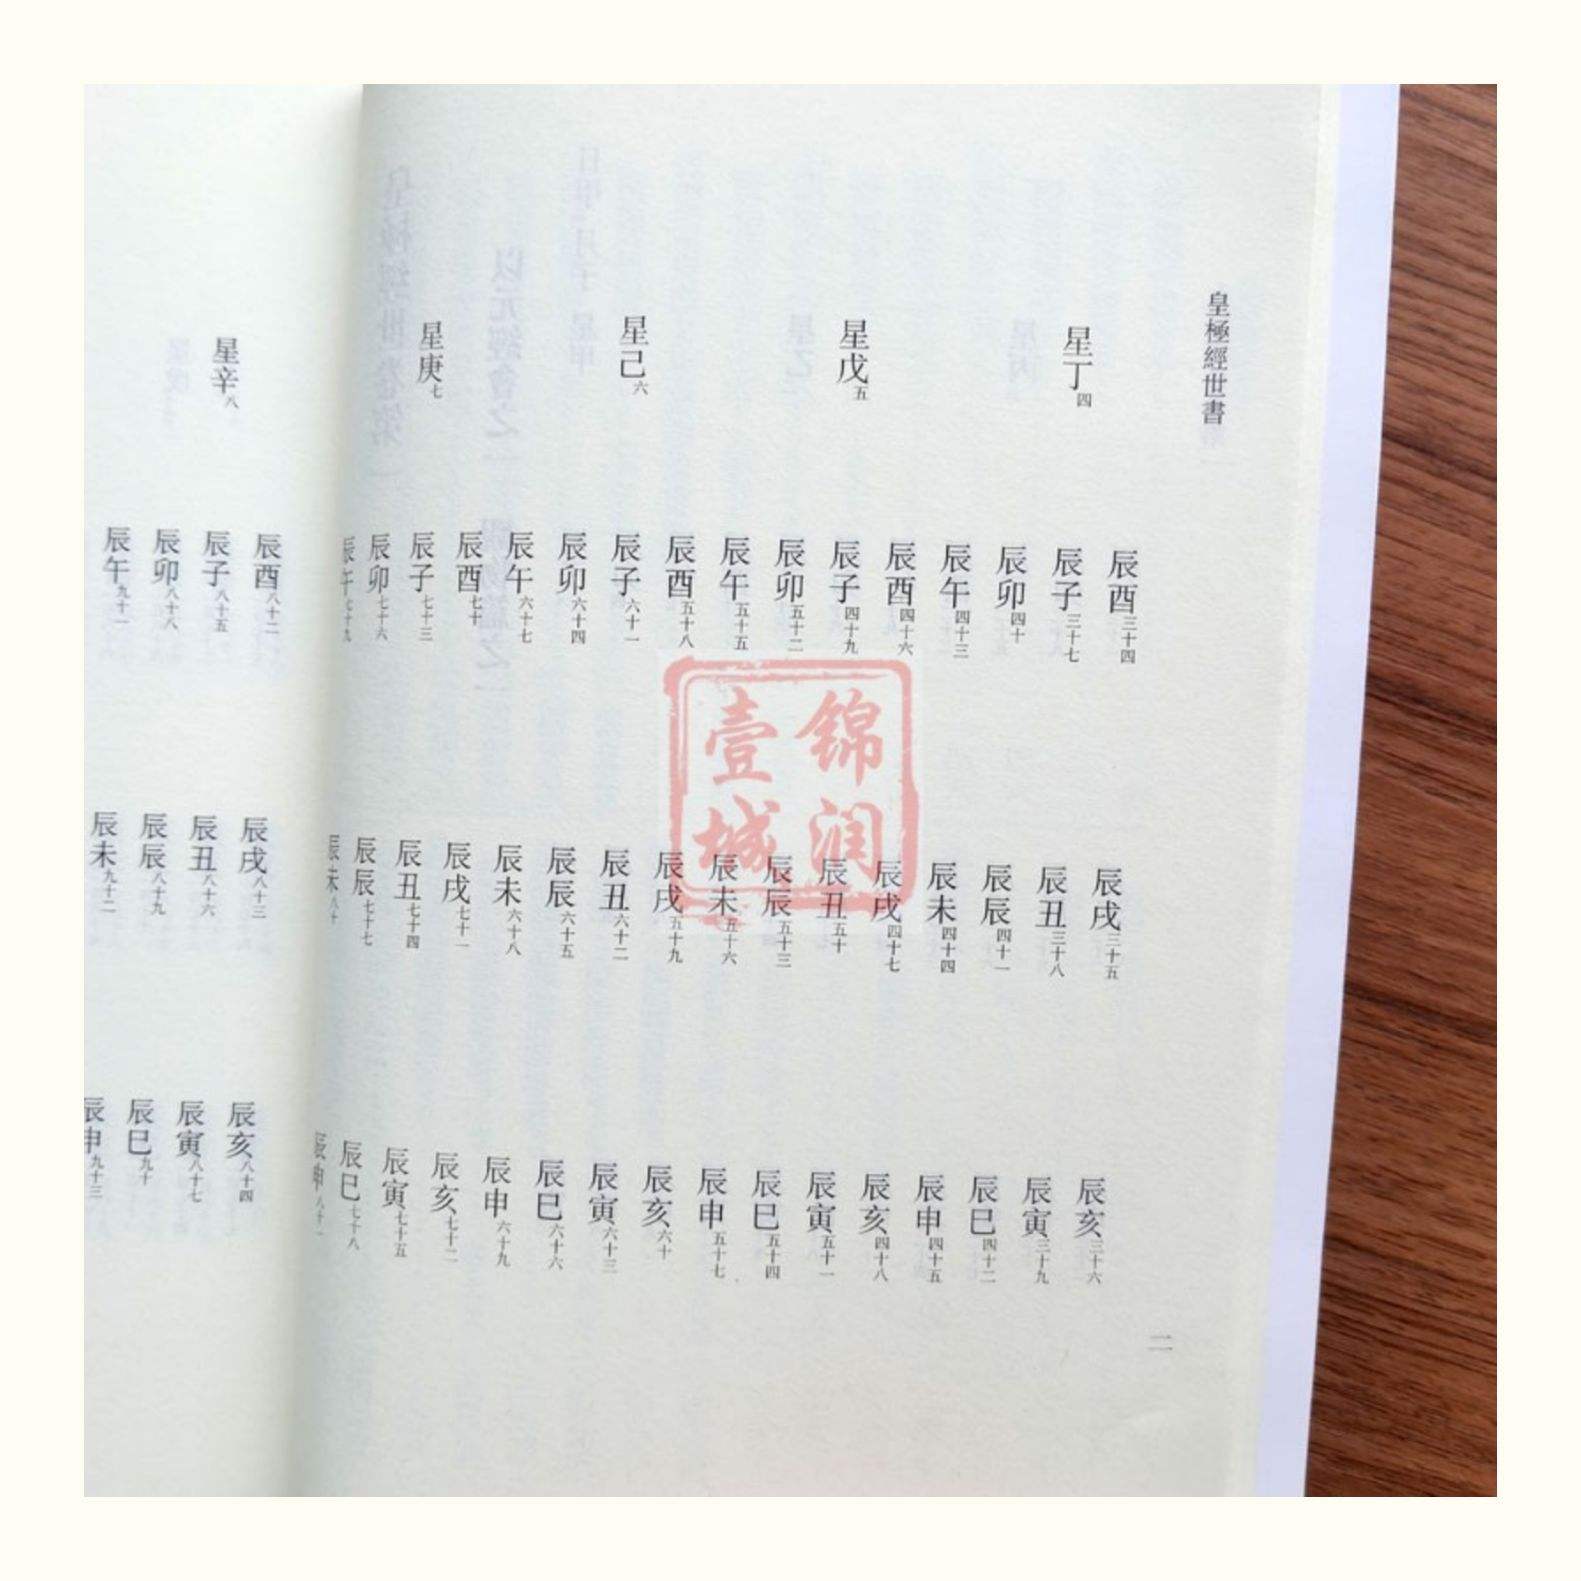 皇極經世書
辰酉三十四 辰戌三十五 辰亥三十六
星丁四 辰子三十七 辰丑三十八 辰寅三十九
辰卯四十 辰辰四十一 辰巳四十二
辰午四十三 辰未四十四 辰申四十五
辰酉四十六 辰戌四十七 辰亥四十八
星戊五 辰子四十九 辰丑五十 辰寅五十一
辰卯五十二 辰辰五十三 辰巳五十四
辰午五十五 辰未五十六 辰申五十七
辰酉五十八 辰戌五十九 辰亥六十
星己六 辰子六十一 辰丑六十二 辰寅六十三
辰卯六十四 辰辰六十五 辰巳六十六
辰午六十七 辰未六十八 辰申六十九
辰酉七十 辰戌七十一 辰亥七十二
星庚七 辰子七十三 辰丑七十四 辰寅七十五
辰卯七十六 辰辰七十七 辰巳七十八
辰午七十九 辰未八十 辰申八十一
二
辰酉八十二 辰戌八十三 辰亥八十四
星辛八 辰子八十五 辰丑八十六 辰寅八十七
辰卯八十八 辰辰八十九 辰巳九十
辰午九十一 辰未九十二 辰申九十三
锦润
壹城